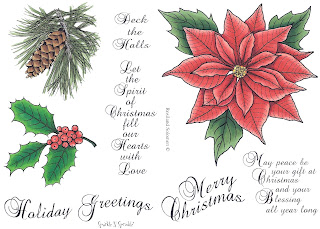 Deck
the
Halls
Let
the
Spirit
of
Christmas
fill
our
Hearts
with
Love
May peace be
your gift at
Christmas
and your
Blessing
all year long
Holiday Greetings
Merry
Christmas